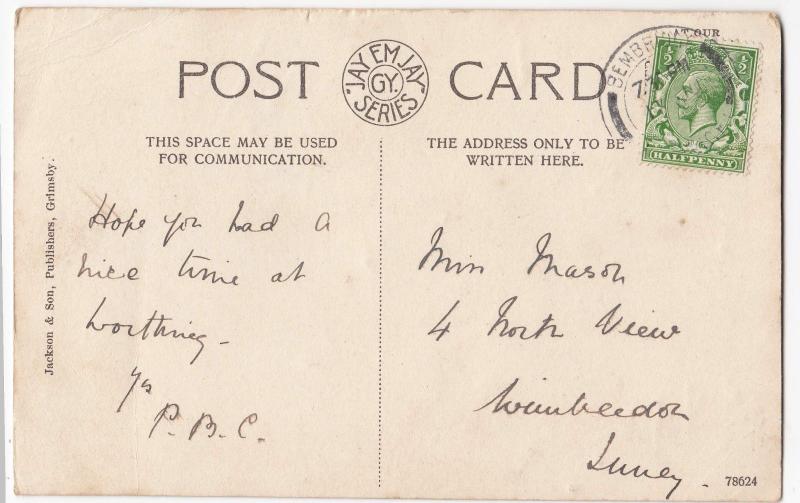 POST CARD
"JAY EM JAY"
GY.
SERIES
THIS SPACE MAY BE USED
FOR COMMUNICATION.
Hope you had a
nice time at
Worthing –
Ys
P. B. C.
Jackson & Son, Publishers, Grimsby.
AT OUR
½ ½
HALFPENNY
THE ADDRESS ONLY TO BE
WRITTEN HERE.
Miss Mason
4 North View
Wimbledon
Surrey.
78624